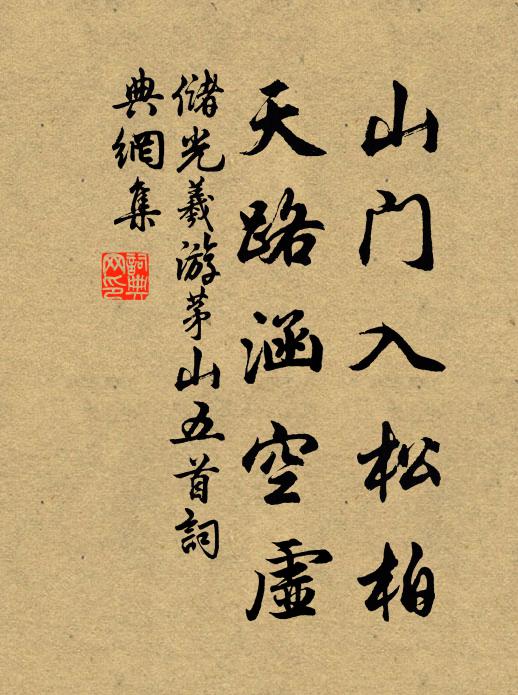 山门入松柏
天路涵空虚
儲光羲游茅山五首詞
典網集
詞典
网印